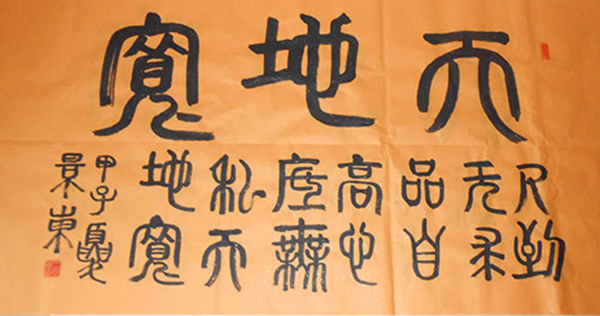 天地寬
人到
无求
品自
高心
底無
私天
地寬
甲子夏
景東